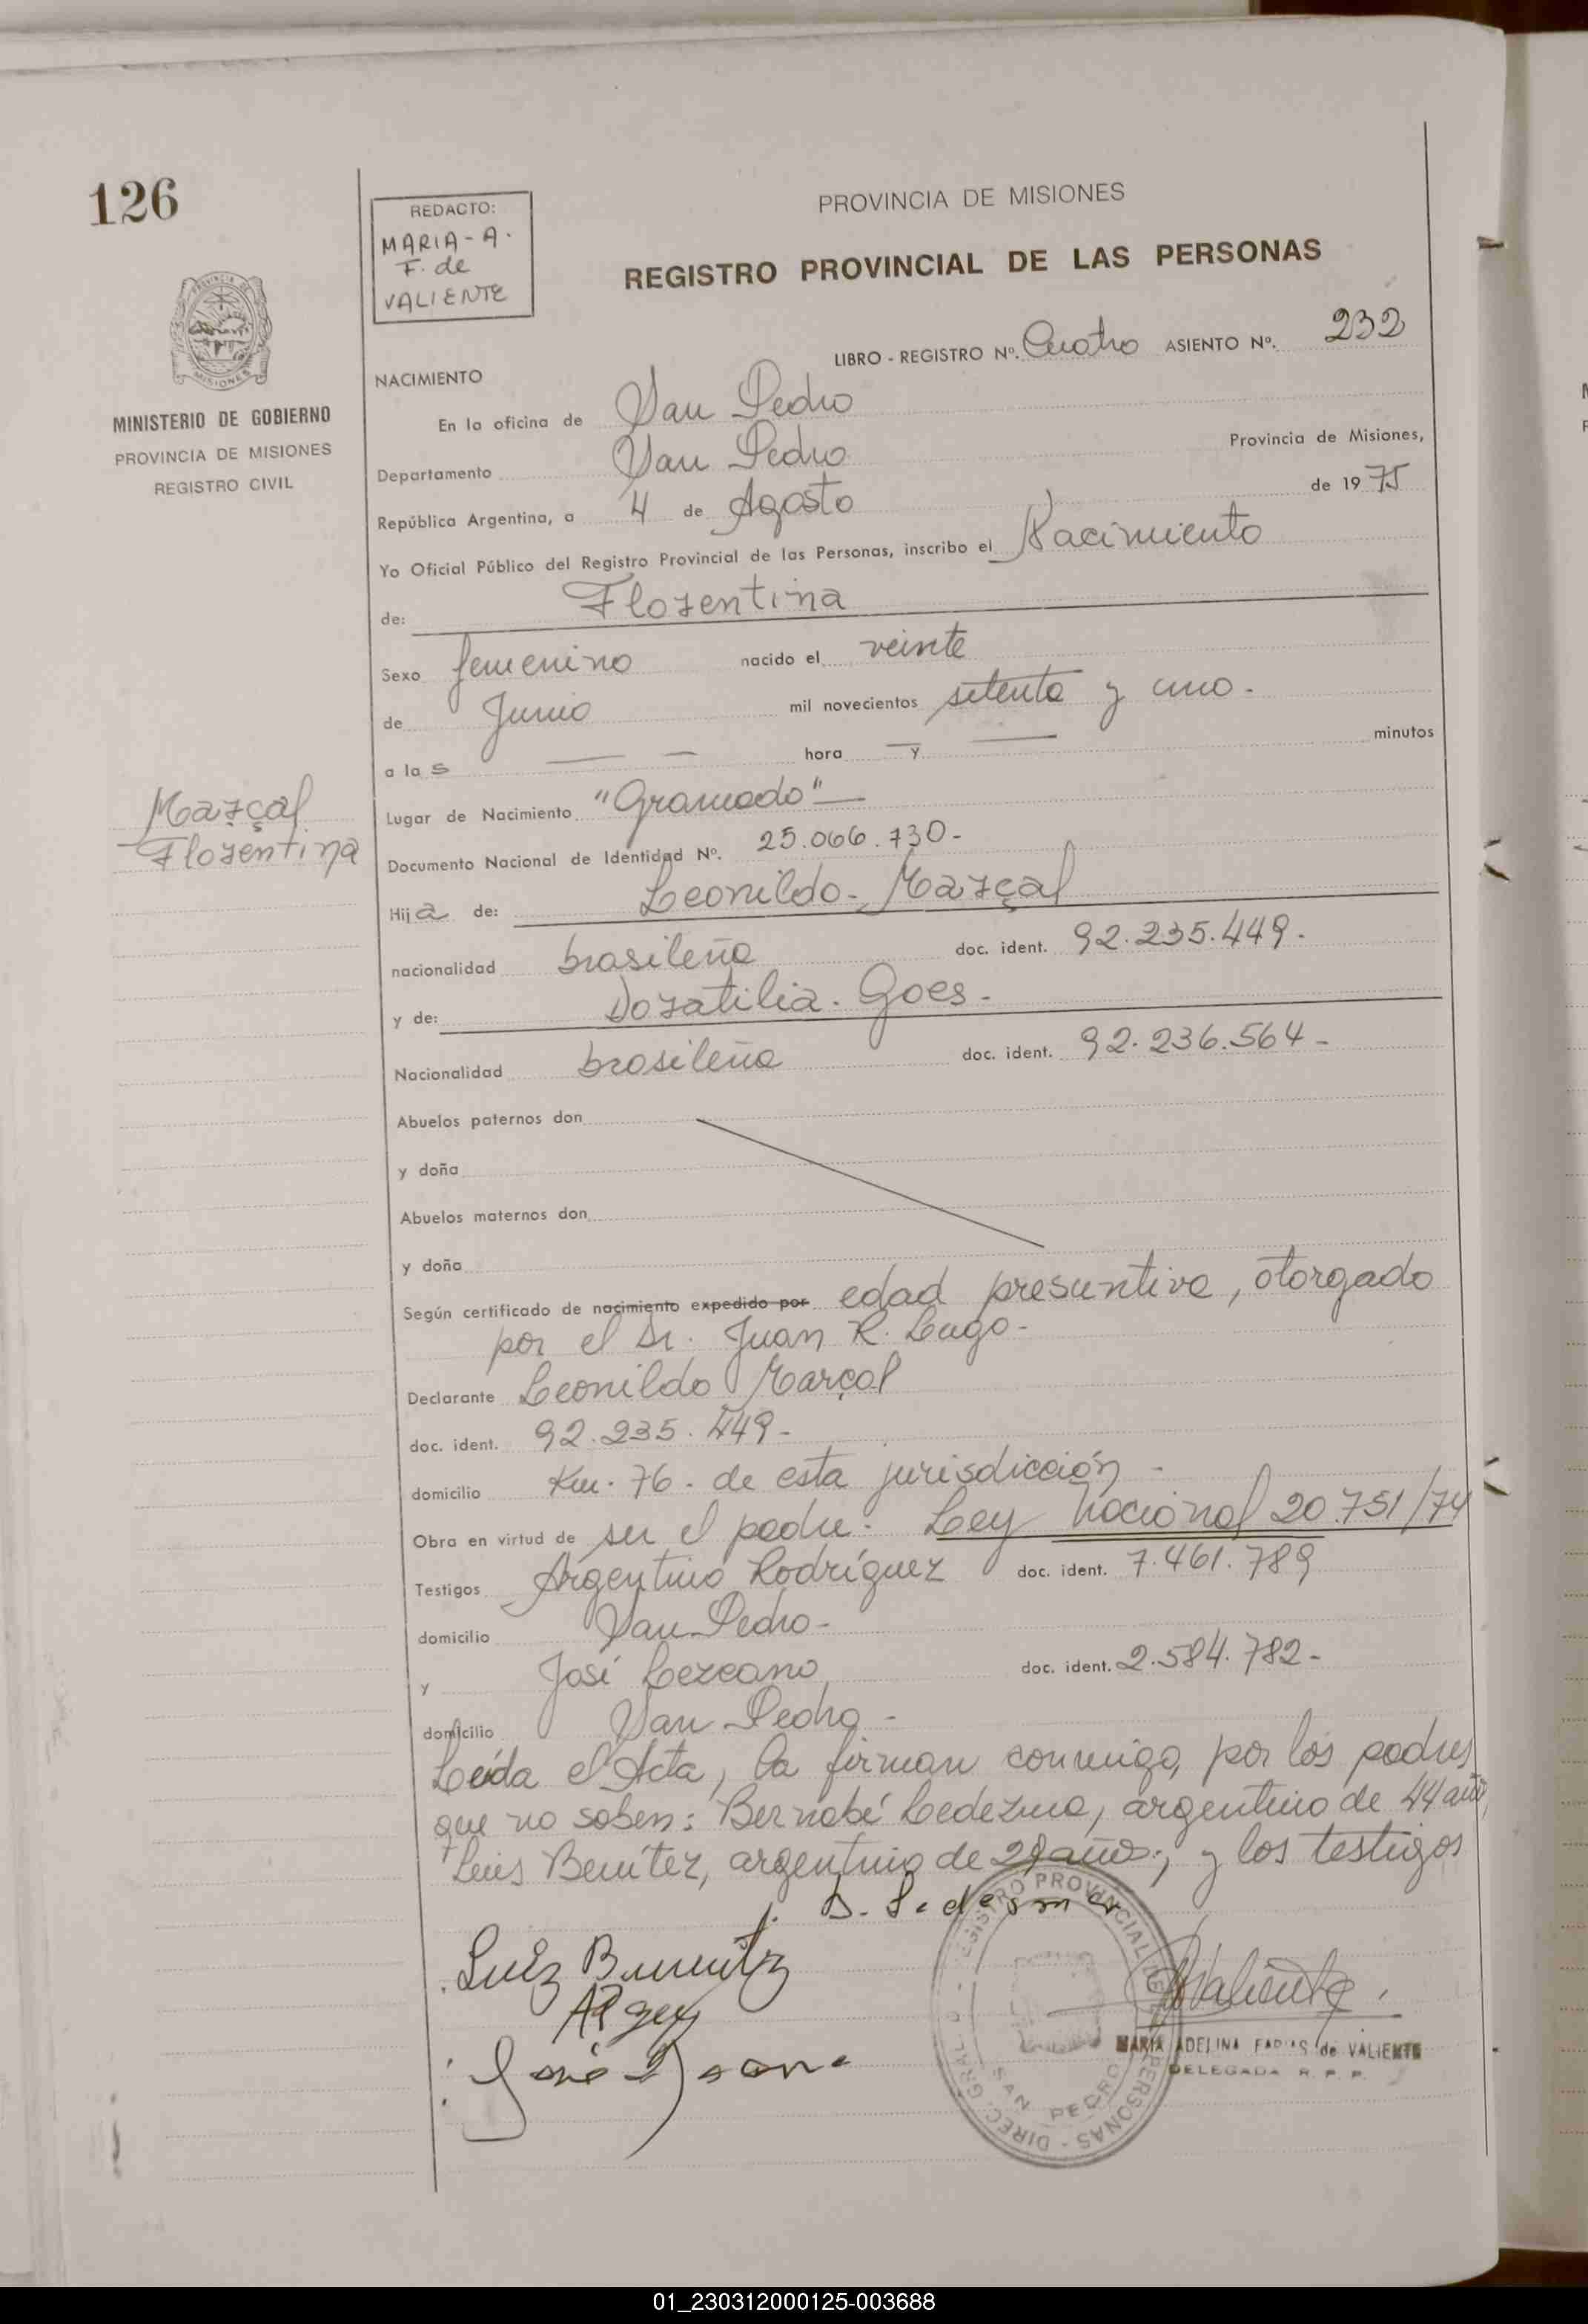 126
REDACTO:
MARIA-A.
F. de
VALIENTE
PROVINCIA DE MISIONES
REGISTRO PROVINCIAL DE LAS PERSONAS
MINISTERIO DE GOBIERNO
PROVINCIA DE MISIONES
REGISTRO CIVIL
LIBRO - REGISTRO Nº. Cuatro ASIENTO Nº. 232
NACIMIENTO
En la oficina de San Pedro
Departamento San Pedro Provincia de Misiones,
República Argentina, a 4 de Agosto de 1975
Yo Oficial Público del Registro Provincial de las Personas, inscribo el Nacimiento
de: Florentina
Sexo femenino nacido el veinte
de Junio mil novecientos setenta y uno.
a las — — hora — y — minutos
Marçal
Florentina
Lugar de Nacimiento "Gramado"—
Documento Nacional de Identidad Nº. 25.066.730-
Hija de: Leonildo- Marçal
nacionalidad brasileña doc. ident. 92.235.449.
y de: Doratilia. Goes-
Nacionalidad brasileña doc. ident. 92.236.564-
Abuelos paternos don
y doña
Abuelos maternos don
y doña
Según certificado de nacimiento expedido por edad presuntiva, otorgado
por el Dr. Juan R. Lugo-
Declarante Leonildo Marçal
doc. ident. 92.235.449-
domicilio Km. 76- de esta jurisdicción-
Obra en virtud de ser el padre. Ley Nacional 20.751/74
Testigos Argentino Rodríguez doc. ident. 7.461.789
domicilio San Pedro-
y José Lezcano doc. ident. 2.584.782-
domicilio San Pedro-
Leída el Acta, la firman conmigo, por los padres
que no saben: Bernabé Ledezma, argentino de 44 años,
Luis Benítez, argentino de 29 años; y los testigos
B. Ledesma
Luiz Benitz
Valiente
MARIA ADELINA FARIAS de VALIENTE
DELEGADA R. P. P.
DIREC. GRAL. D REGISTRO PROVINCIAL DE PERSONAS
SAN PEDRO
01_230312000125-003688